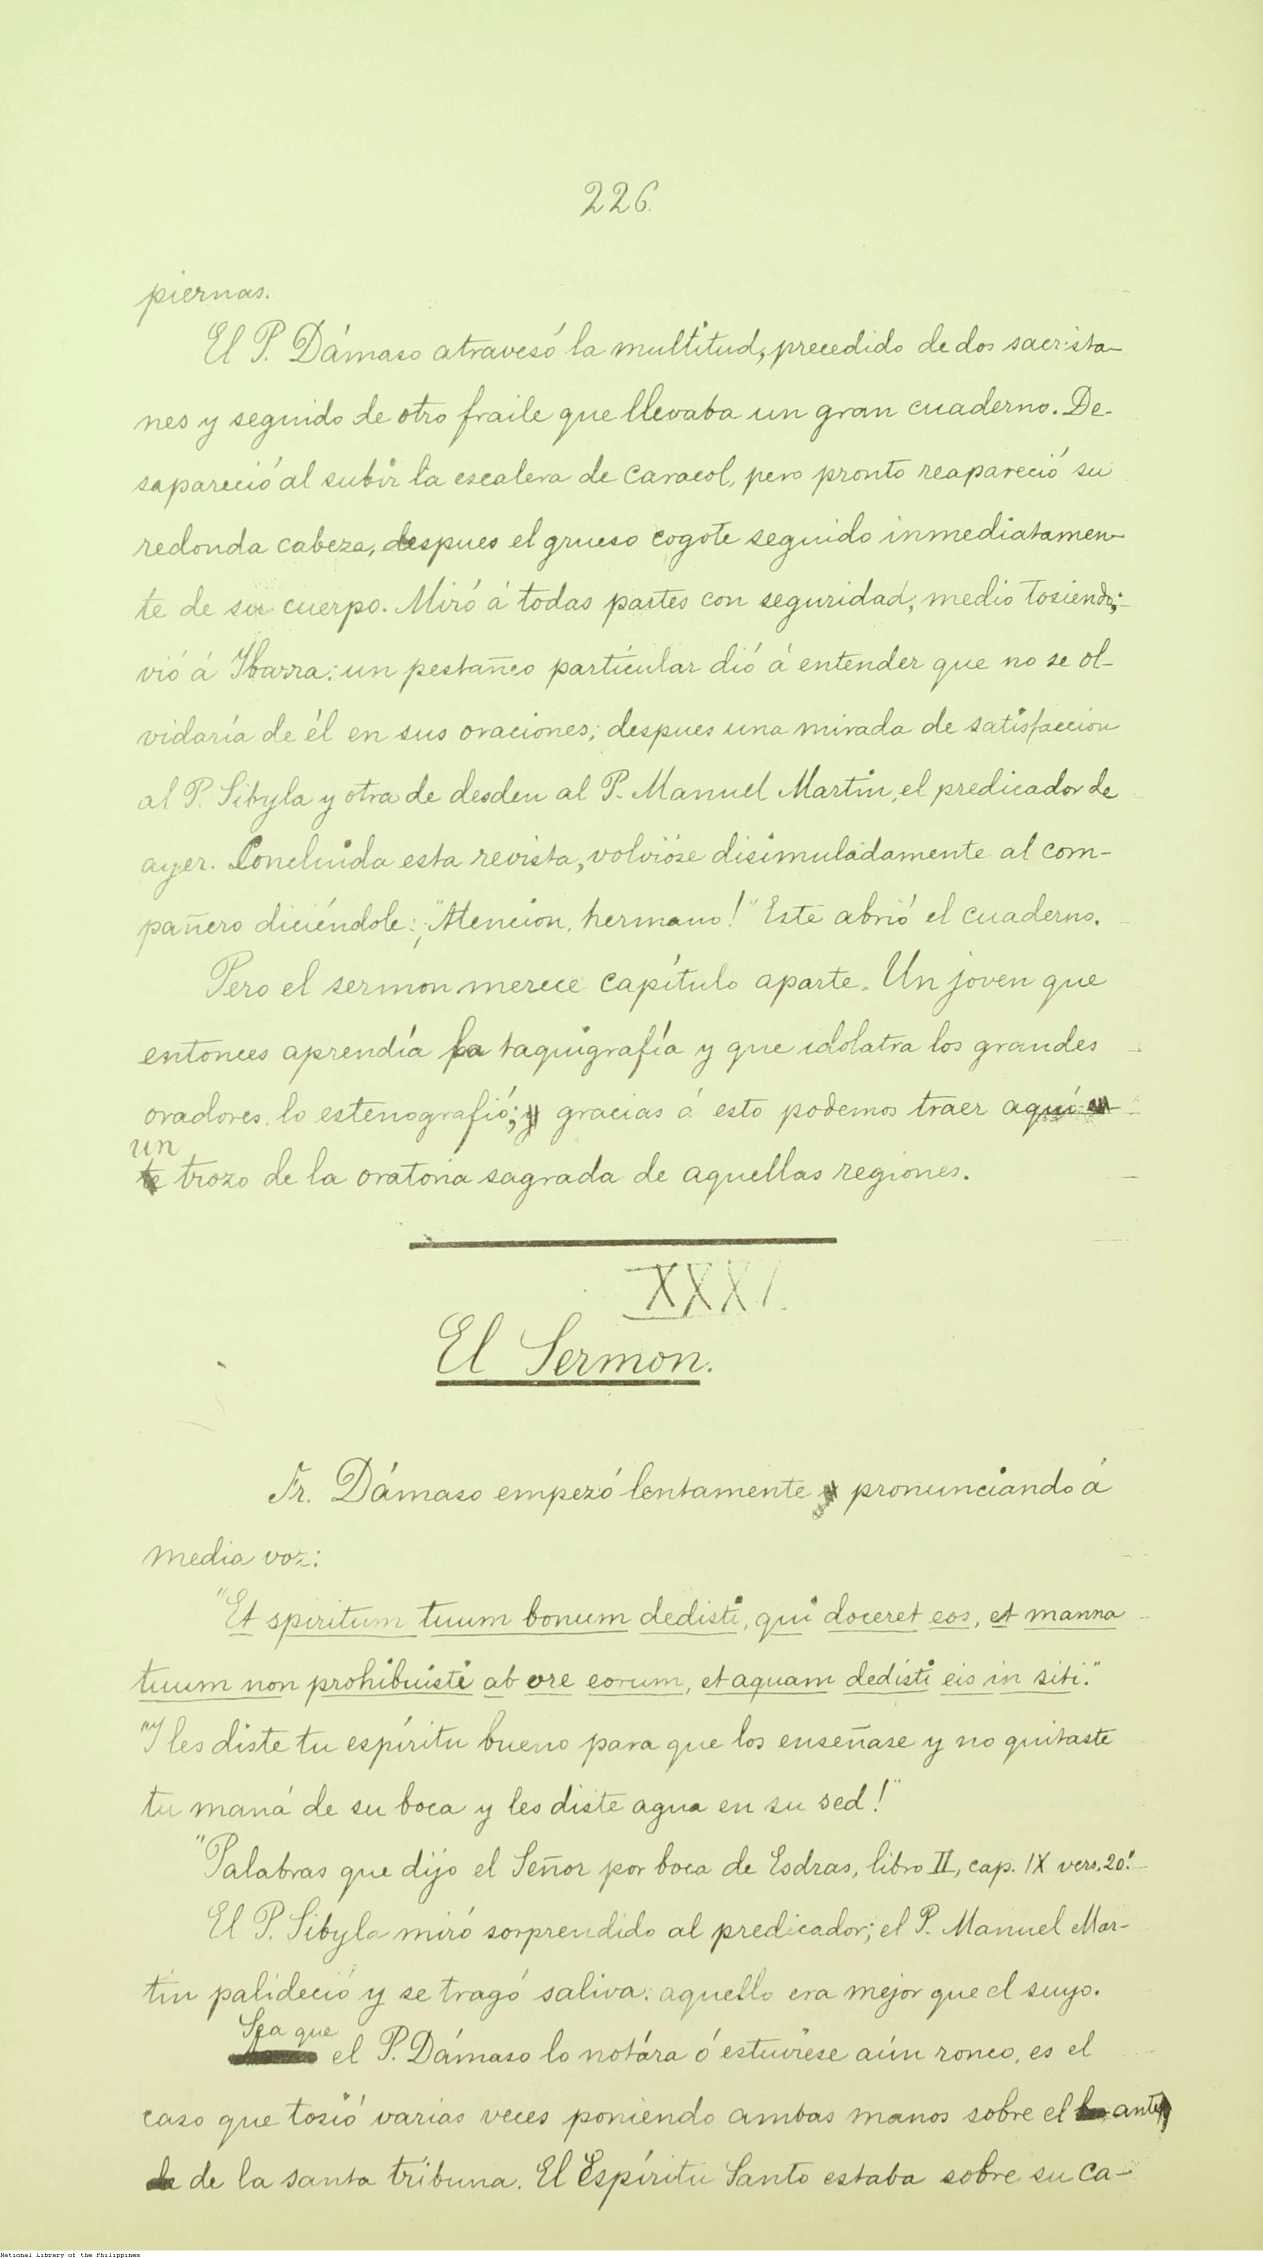 226.
piernas.
El P. Dámaso atravesó la multitud, precedido de dos sacrista-
nes y seguido de otro fraile que llevaba un gran cuaderno. De-
sapareció al subir la escalera de caracol, pero pronto reapareció su
redonda cabeza, despues el grueso cogote seguido inmediatamen-
te de su cuerpo. Miró á todas partes con seguridad, medio tosiendo;
vió á Ibarra: un pestañeo particular dió á entender que no se ol-
vidaría de él en sus oraciones; despues una mirada de satisfaccion
al P. Sibyla y otra de desden al P. Manuel Martin, el predicador de
ayer. Concluida esta revista, volvióse disimuladamente al com-
pañero diciéndole: ¡"Atencion, hermano!" Este abrió el cuaderno.
Pero el sermon merece capítulo aparte. Un joven que
entonces aprendía la taquigrafía y que idolatra los grandes
oradores, lo estenografió; y gracias á esto podemos traer aquí
un
trozo de la oratoria sagrada de aquellas regiones.
XXXI.
El Sermon.
Fr. Dámaso empezó lentamente pronunciando á
media voz:
"Et spiritum tuum bonum dedisti, qui doceret eos, et manna
tuum non prohibuisti ab ore eorum, et aquam dedisti eis in siti."
"Y les diste tu espíritu bueno para que los enseñase y no quitaste
tu maná de su boca y les diste agua en su sed!"
"Palabras que dijo el Señor por boca de Esdras, libro II, cap. IX vers. 20."
El P. Sibyla miró sorprendido al predicador; el P. Manuel Mar-
tin palideció y se tragó saliva: aquello era mejor que el suyo.
Sea que
el P. Dámaso lo notára ó estuviese aún ronco, es el
caso que tosió varias veces poniendo ambas manos sobre el ante
de la santa tribuna. El Espíritu Santo estaba sobre su ca-
National Library of the Philippines